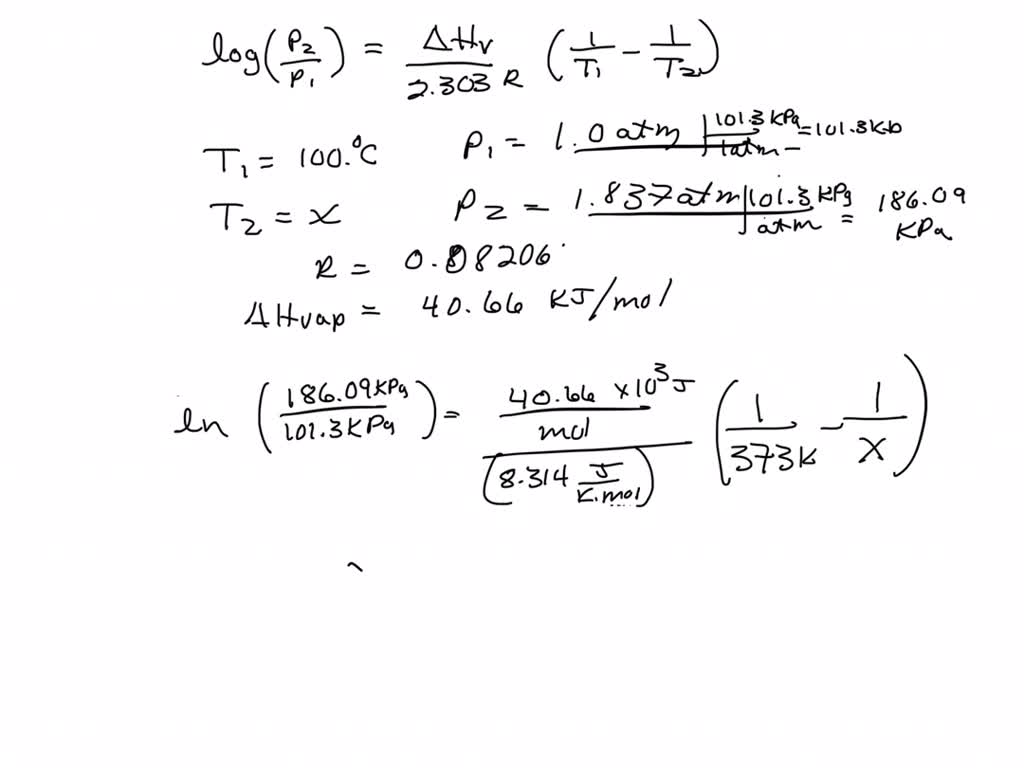 log(P2/P1) = ΔHv/2.303 R (1/T1 − 1/T2)
T1 = 100.°C P1 = 1.0 atm | 101.3 KPa/1atm = 101.3K
T2 = x P2 = 1.837 atm | 101.3 KPa/atm = 186.09 KPa
R = 0.08206
ΔHvap = 40.66 KJ/mol
ln (186.09 KPa/101.3 KPa) = (40.66 × 10³ J/mol)/(8.314 J/K.mol) (1/373K − 1/X)